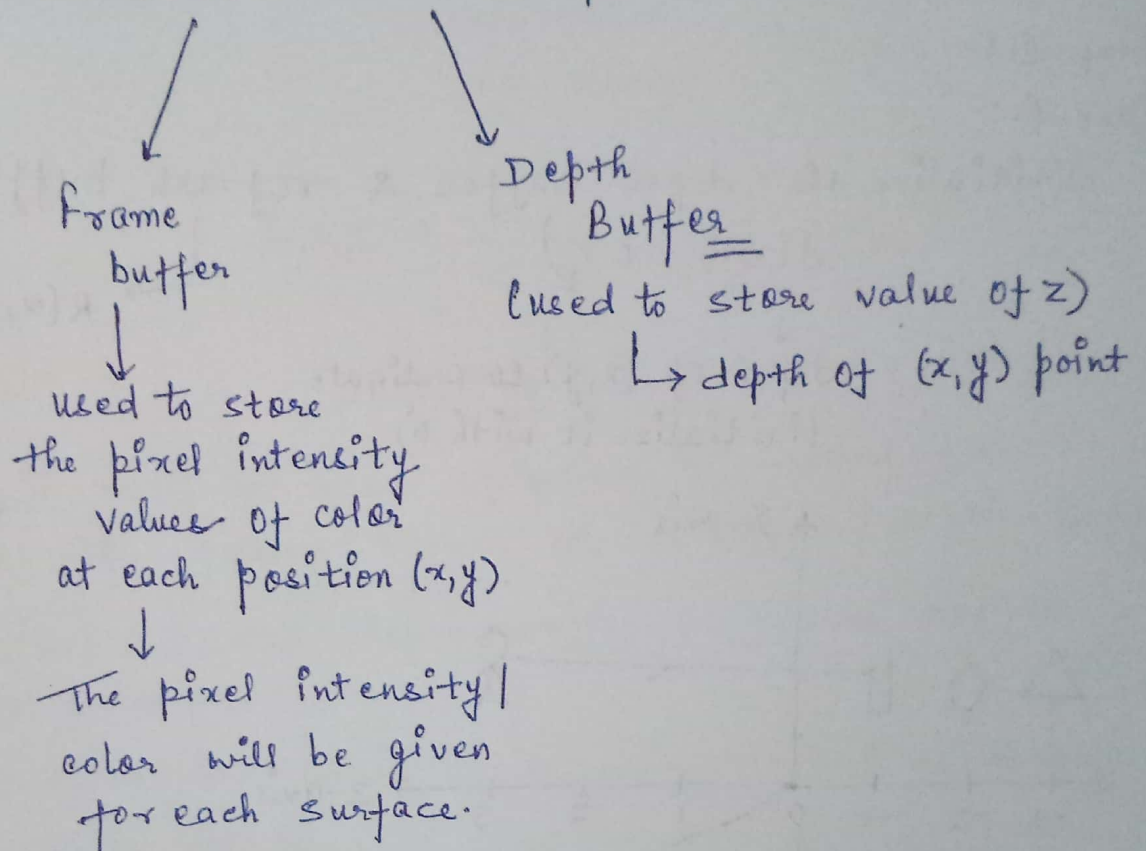 frame
buffer
used to store
the pixel intensity
values of color
at each position (x,y)
The pixel intensity |
color will be given
for each surface.
Depth
Buffer
(used to store value of z)
↳ depth of (x,y) point